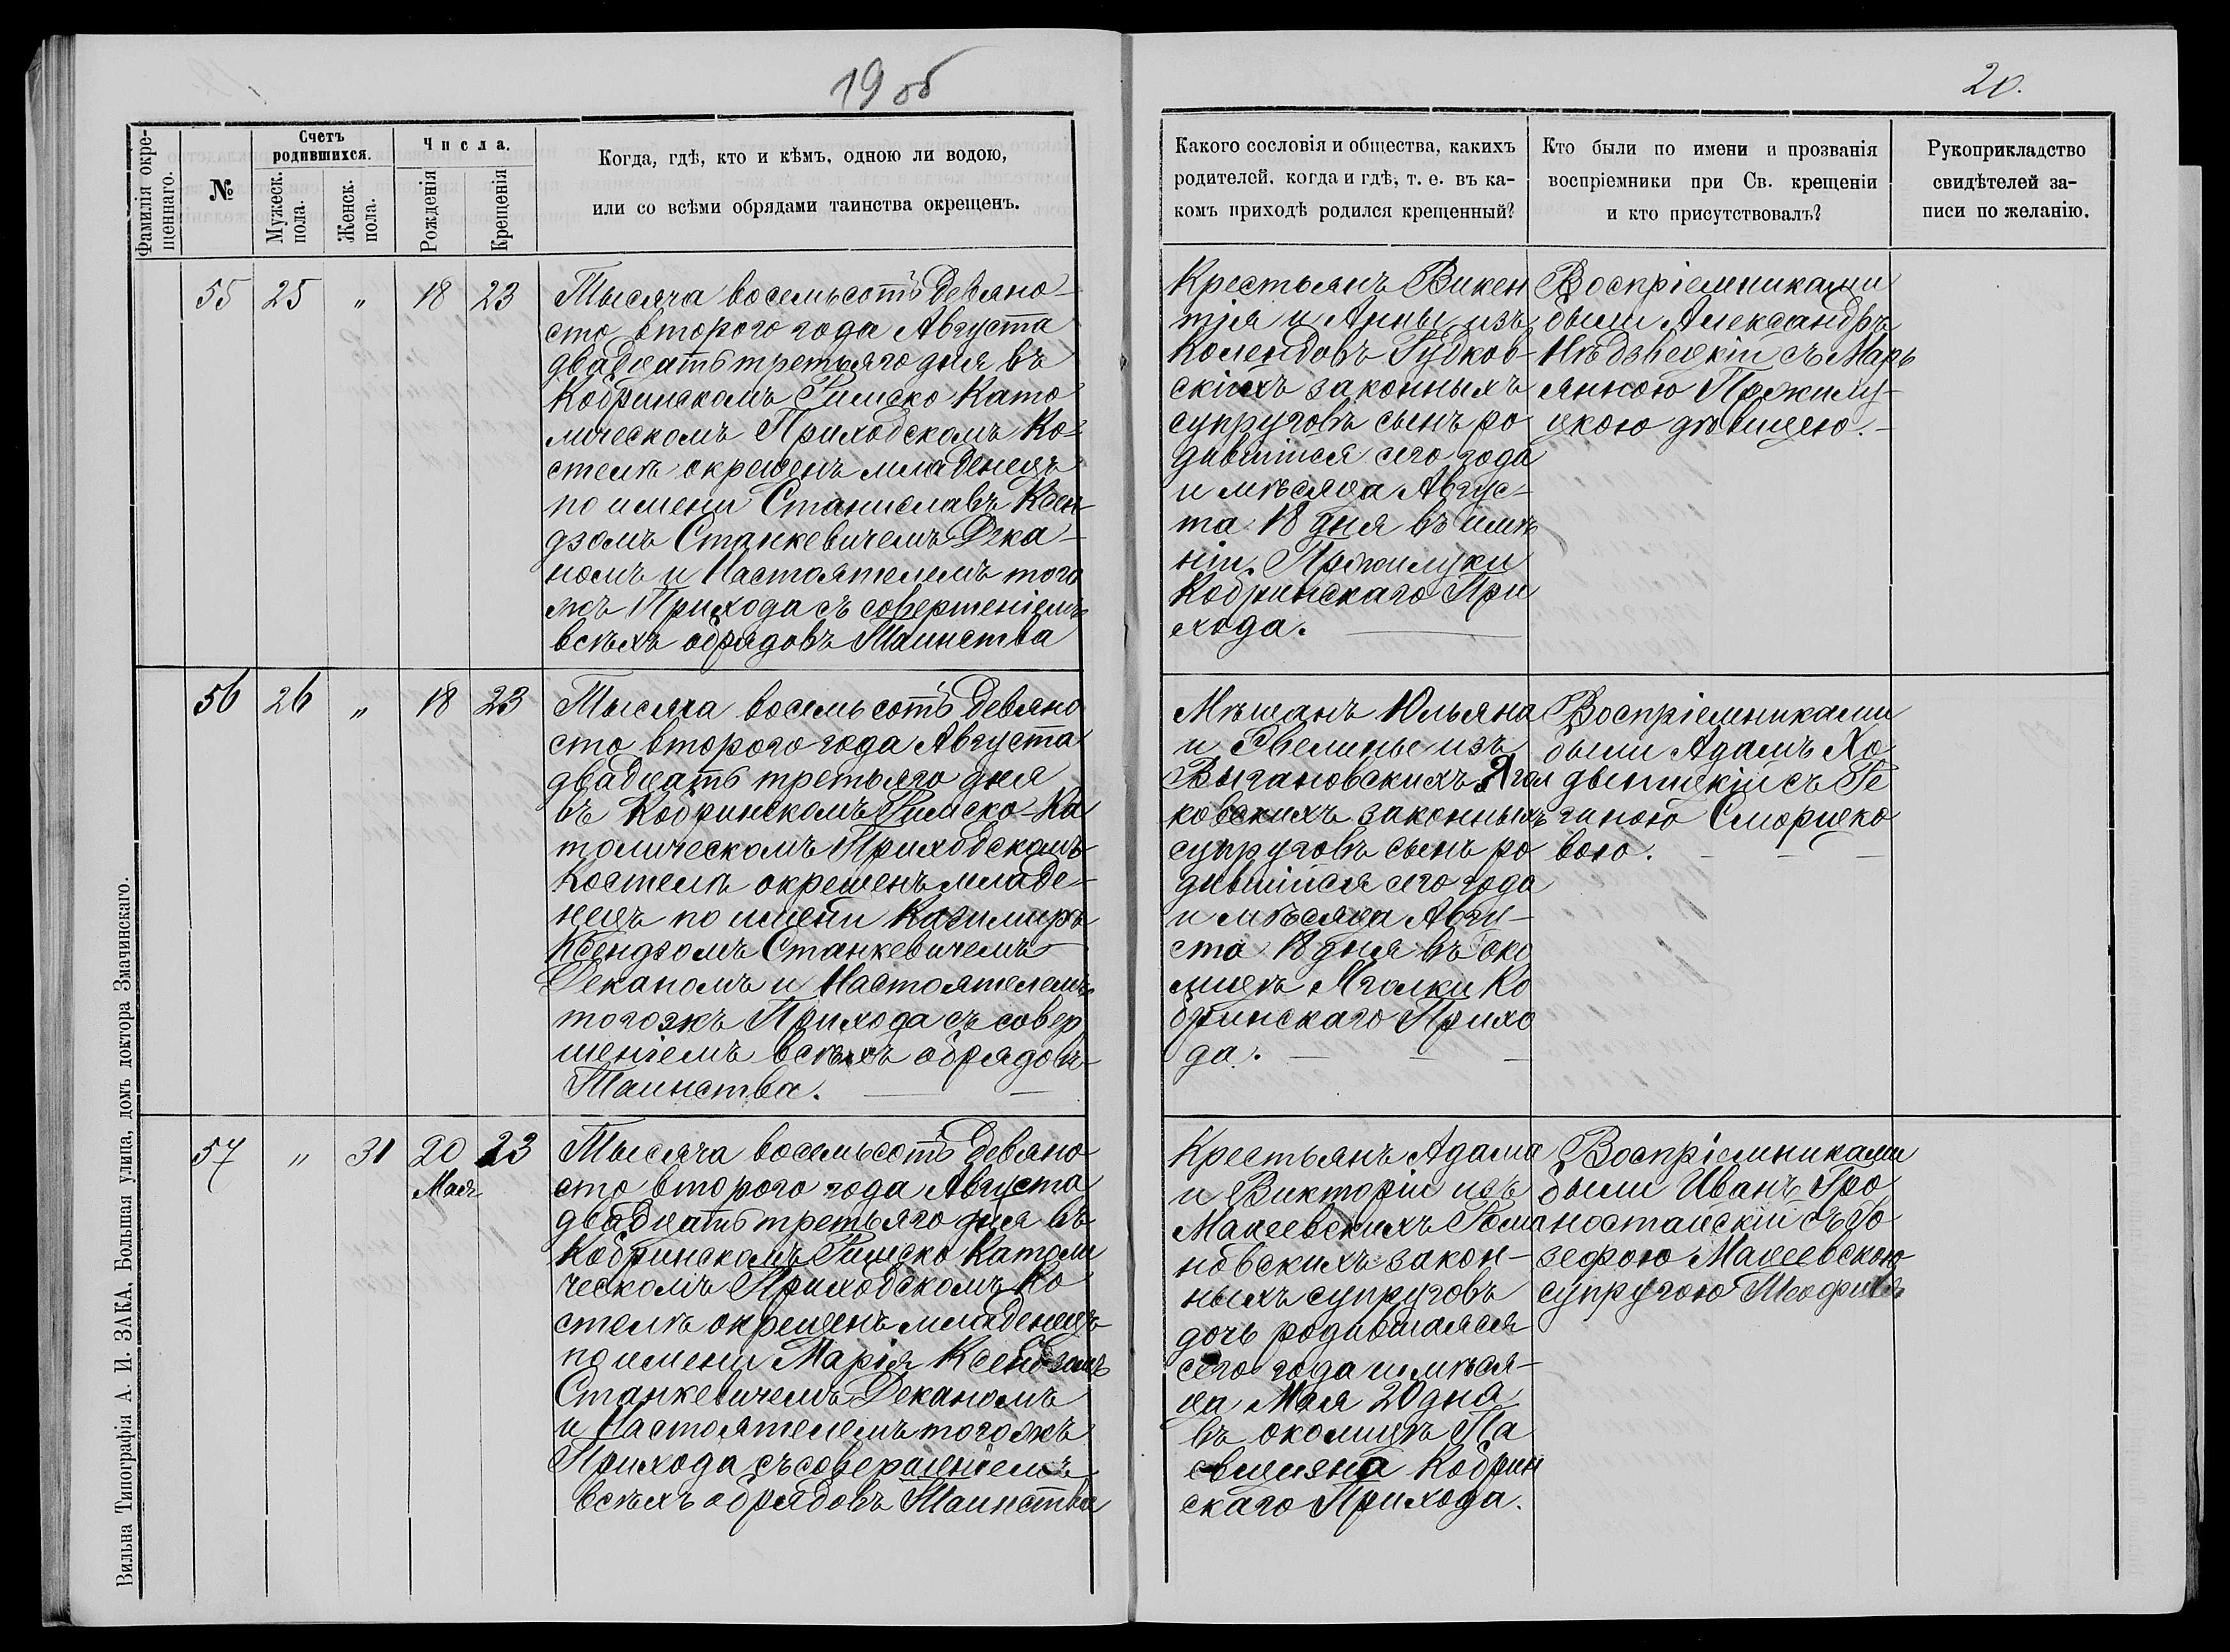 19 об
20.
Фамилія окре-
щеннаго.
№
Счетъ
родившихся.
Мужеск.
пола.
Женск.
пола.
Числа.
Рожденія
Крещенія
Когда, гдѣ, кто и кѣмъ, одною ли водою,
или со всѣми обрядами таинства окрещенъ.
Какого сословія и общества, какихъ
родителей, когда и гдѣ, т. е. въ ка-
комъ приходѣ родился крещенный?
Кто были по имени и прозванія
воспріемники при Св. крещеніи
и кто присутствовалъ?
Рукоприкладство
свидѣтелей за-
писи по желанію.
55 25 " 18 23
Тысяча восемьсотъ девяно-
сто второго года Августа
двадцать третьяго дня въ
Кобринскомъ Римско Като
лическомъ Приходскомъ Ко-
стелѣ окрещенъ младенецъ
по имени Станиславъ Ксен-
дзомъ Станкевичемъ Дека-
номъ и Настоятелемъ того
жъ Прихода съ совершеніемъ
всѣхъ обрядовъ Таинства
Крестьянъ Викен
тія и Анны изъ
Колендовъ Гудков-
скихъ законныхъ
супруговъ сынъ ро
дившійся сего года
и мѣсяца Авгус-
та 18 дня въ имѣ
ніи
Кобринскаго При
хода.
Воспріемниками
были Александръ
Нѣдзвецкій съ Марь
янною
цкою дѣвицею.
56 26 " 18 23
Тысяча восемьсотъ девяно
сто второго года Августа
двадцать третьяго дня
въ Кобринскомъ Римско-Ка
толическомъ Приходскомъ
Костелѣ окрещенъ младе-
нецъ по имени Казимиръ
Ксендзомъ Станкевичемъ
Деканомъ и Настоятелемъ
тогожъ Прихода съ совер
шеніемъ всѣхъ обрядовъ
Таинства.
Мѣщанъ Юльяна
и Эвелины изъ
Выгановскихъ Ягол
ковскихъ законныхъ
супруговъ сынъ ро
дившійся сего года
и мѣсяца Авгу-
ста 18 дня въ око
лицѣ Яголки Ко
бринскаго Прихо
да.
Воспріемниками
были Адамъ Хо
съ Ре
гиною Сморцко
вою.
57 " 31 20 23
Мая
Тысяча восемьсотъ девяно-
сто второго года Августа
двадцать третьяго дня въ
Кобринскомъ Римско Католи
ческомъ Приходскомъ Ко
стелѣ окрещенъ младенецъ
по имени Марія Ксендзомъ
Станкевичемъ Деканомъ
и Настоятелемъ тогожъ
Прихода съ совершеніемъ
всѣхъ обрядовъ Таинства
Крестьянъ Адама
и Викторіи изъ
Мацеевскихъ Рома
новскихъ закон-
ныхъ супруговъ
дочь родившаяся
сего года и мѣся-
ца Мая 20 дня
въ околицѣ
Кобрин
скаго Прихода.
Воспріемниками
были Иванъ Гро
ностайскій съ Ю
зефою Мацеевскою
супругою
Вильна Типографія А. И. ЗАКА, Большая улица, домъ доктора Змачинскаго.